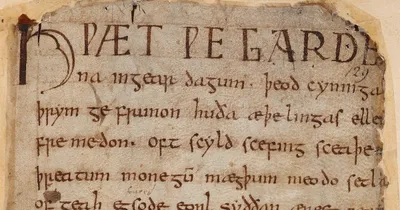 HǷÆT ǷE GARDE
na ingear dagum. þeod cyninga
þrym ge frunon huða æþelingas elle
fre medon. oft scyld scefing sceaþe
þreatum monegū mægþum meodo setla
of teah egsode eorl syððan